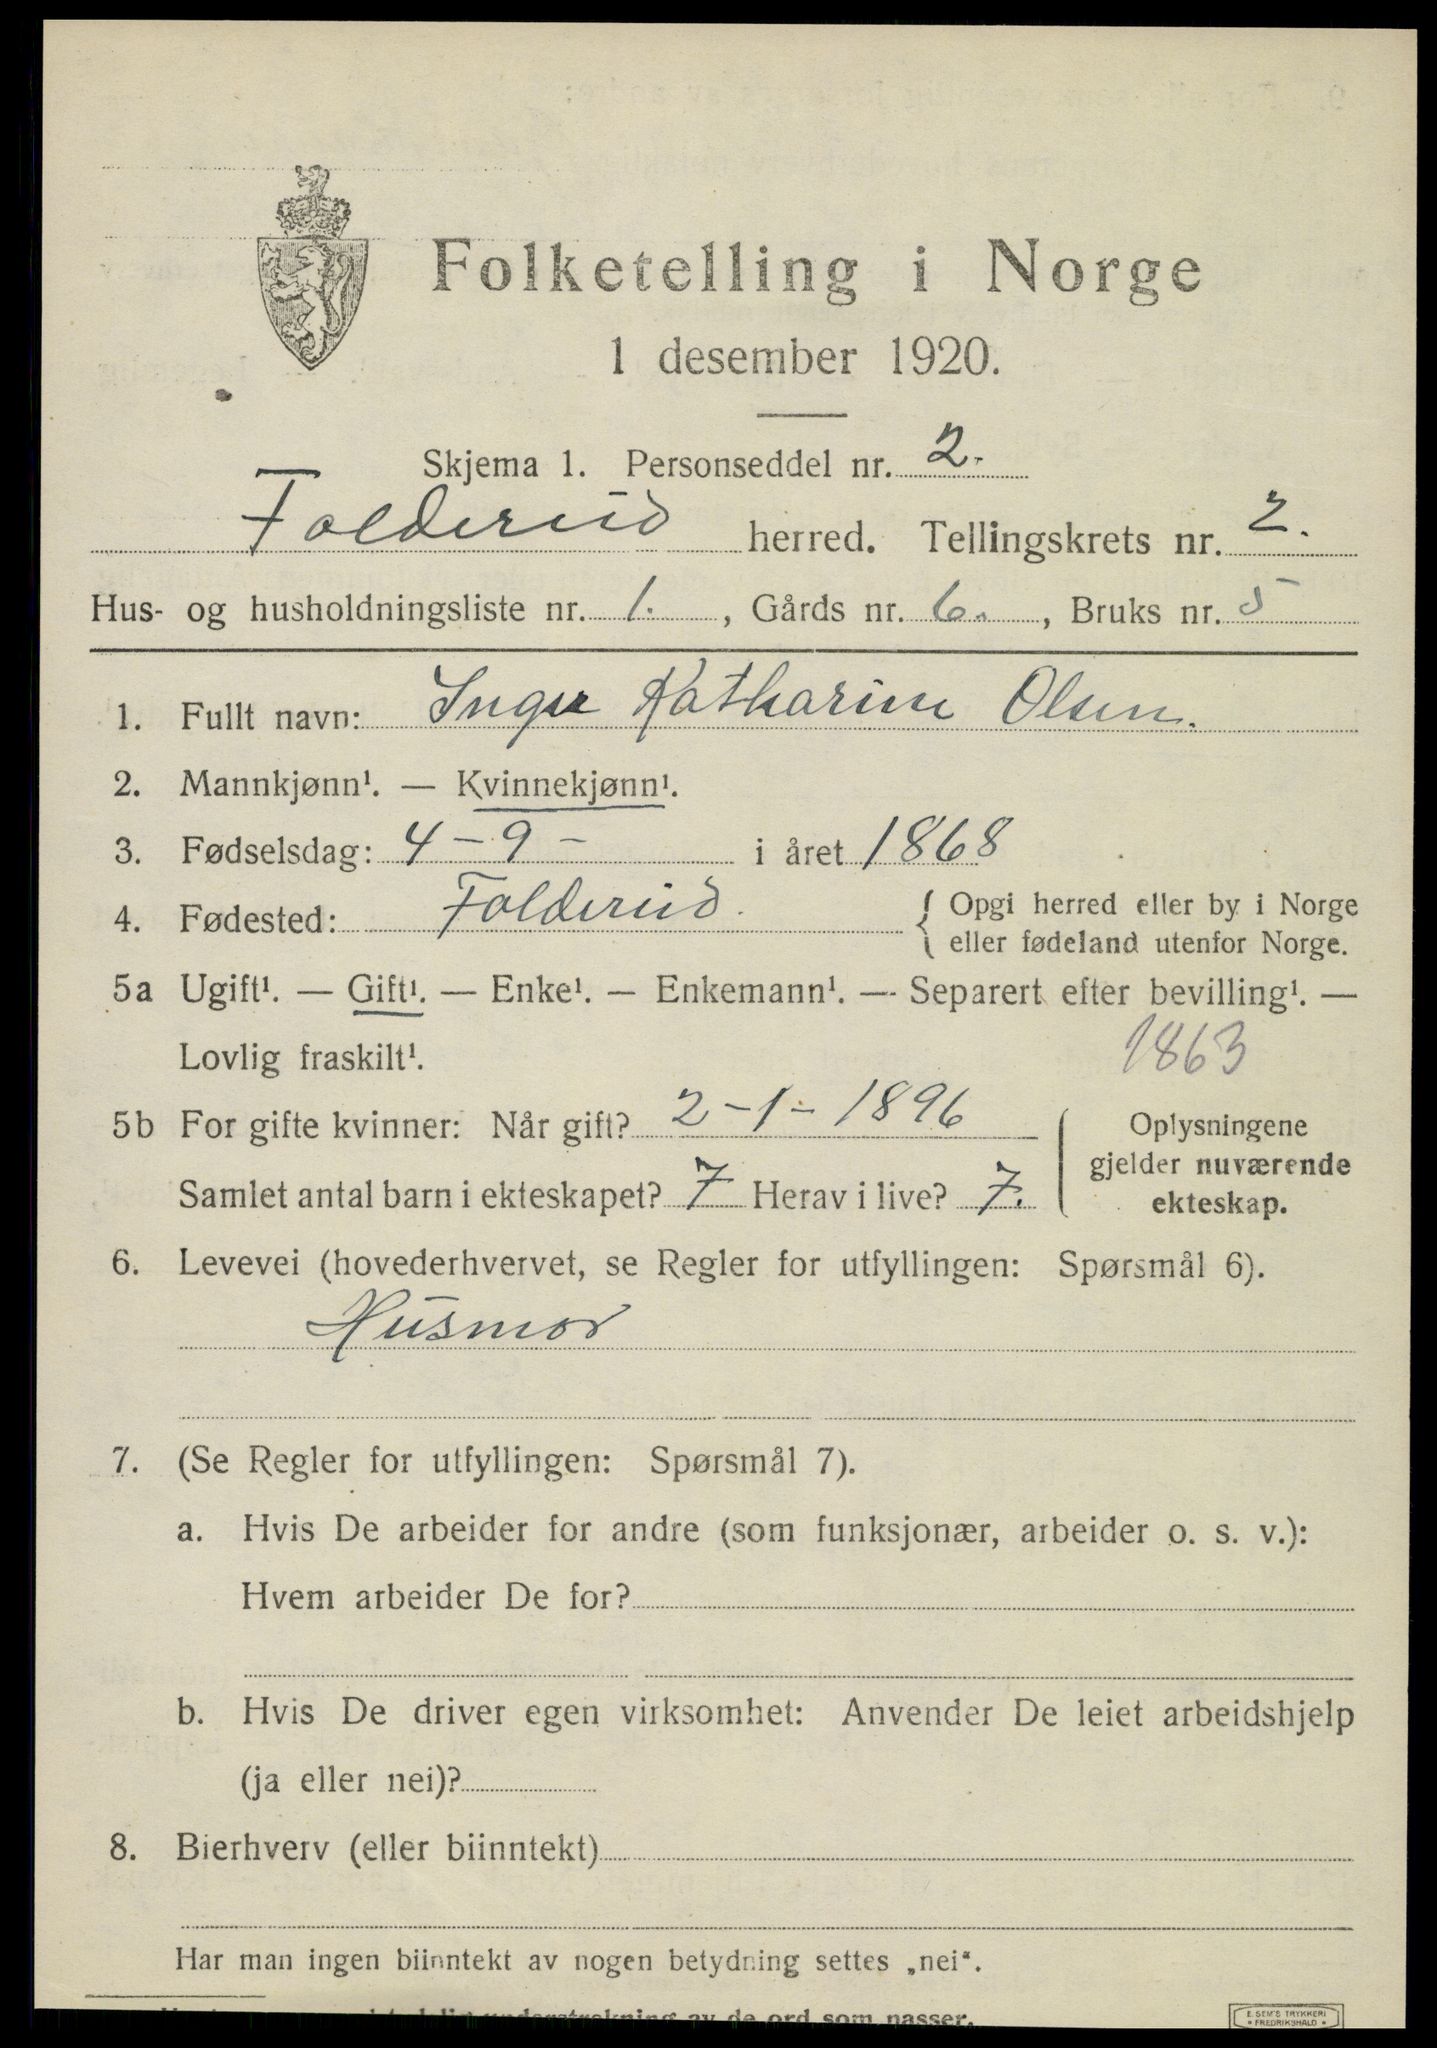 Folketelling i Norge
1 desember 1920.
Skjema 1. Personseddel nr. 2.
Foldereid herred. Tellingskrets nr. 2.
Hus- og husholdningsliste nr. 1., Gårds nr. 6., Bruks nr. 5
1. Fullt navn: Inger Katharine Olsen.
2. Mannkjønn¹. — Kvinnekjønn¹.
3. Fødselsdag: 4 - 9 - i året 1868
4. Fødested: Foldereid. { Opgi herred eller by i Norge
eller fødeland utenfor Norge.
5a Ugift¹. — Gift¹. — Enke¹. — Enkemann¹. — Separert efter bevilling¹. —
Lovlig fraskilt¹. 1863
5b For gifte kvinner: Når gift? 2-1-1896
Samlet antal barn i ekteskapet? 7 Herav i live? 7.
Oplysningene
gjelder nuværende
ekteskap.
6. Levevei (hovederhvervet, se Regler for utfyllingen: Spørsmål 6).
Husmor
7. (Se Regler for utfyllingen: Spørsmål 7).
a. Hvis De arbeider for andre (som funksjonær, arbeider o. s. v.):
Hvem arbeider De for?
b. Hvis De driver egen virksomhet: Anvender De leiet arbeidshjelp
(ja eller nei)?
8. Bierhverv (eller biinntekt)
Har man ingen biinntekt av nogen betydning settes „nei“.
understrekning av de ord som passer.
E. SEM'S TRYKKERI
• FREDRIKSHALD •